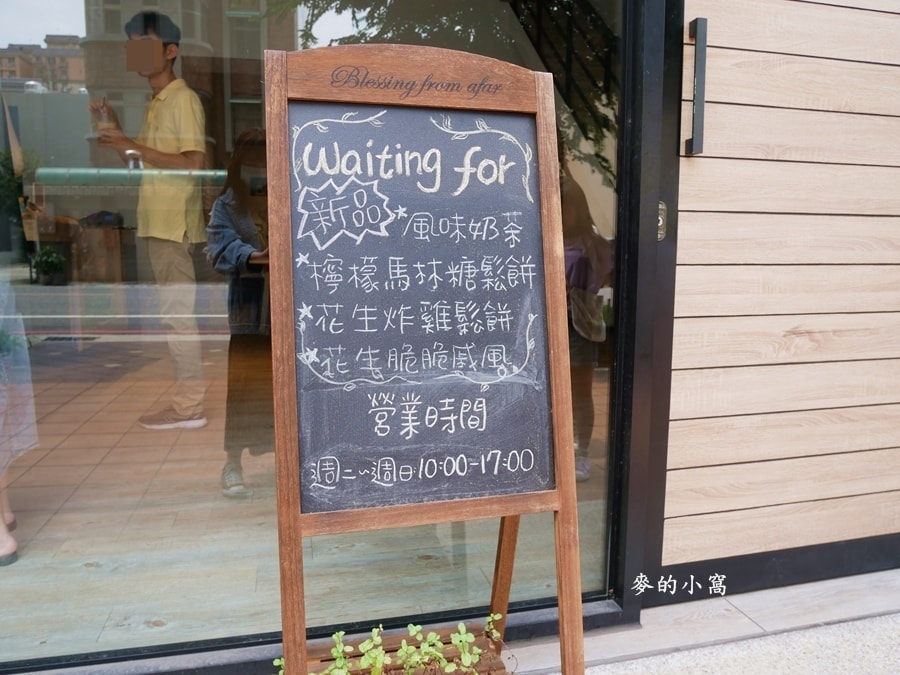 Blessing from afar
Waiting for
新品
風味奶茶
檸檬馬林糖鬆餅
花生炸雞鬆餅
花生脆脆戚風
營業時間
週二~週日:10:00-17:00
麥的小窩